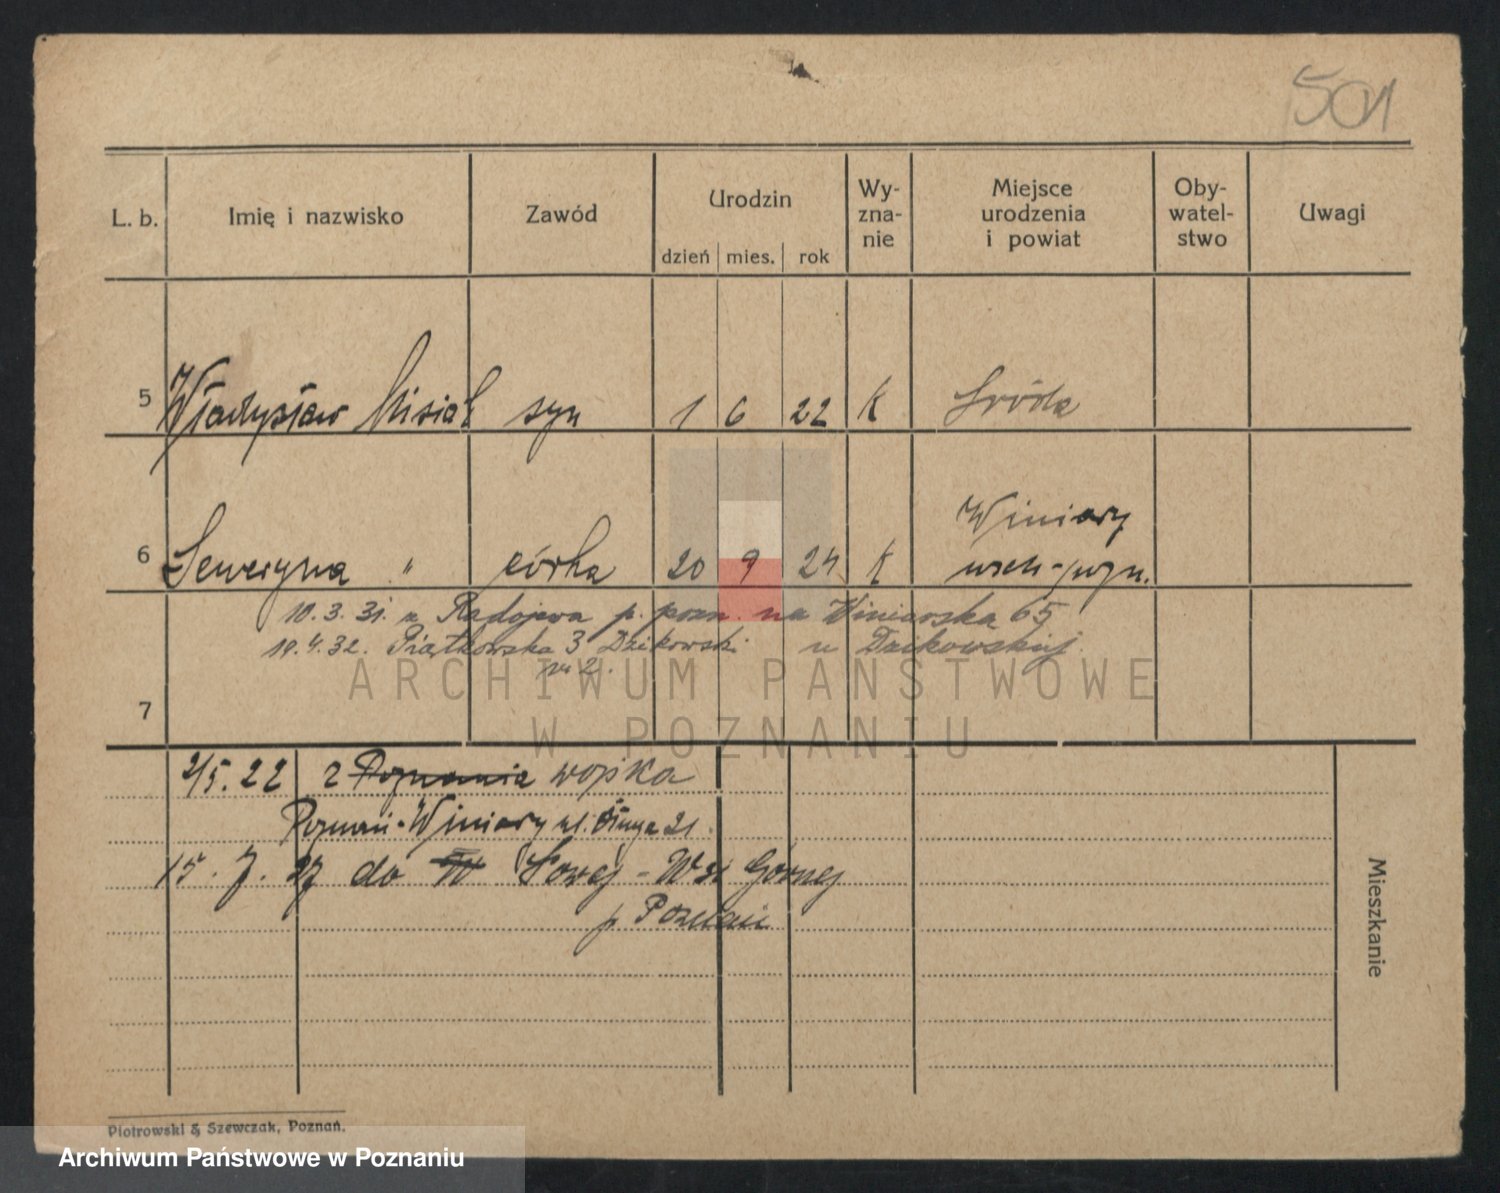 501
L. b. Imię i nazwisko Zawód Urodzin dzień mies. rok Wy-zna-nie Miejsce urodzenia i powiat Oby-watel-stwo Uwagi
5 Władysław Misiak syn 1 6 22 K Środa
Winiary
6 Seweryna " córka 20 9 24 K wsch-pozn.
10.3.31. z Radojewa p. pozn. na Winiarska 65
19.4.32. Piątkowska 3 Dzikowski u Dzikowskiej
m 2.
7
ARCHIWUM PAŃSTWOWE
W POZNANIU
2/5.22 z Poznania wojska
Poznań-Winiary ul. Długa 21.
15.7.27 do Nowej-Wsi Górnej
p Poznań
Mieszkanie
Piotrowski & Szewczak, Poznań.
Archiwum Państwowe w Poznaniu